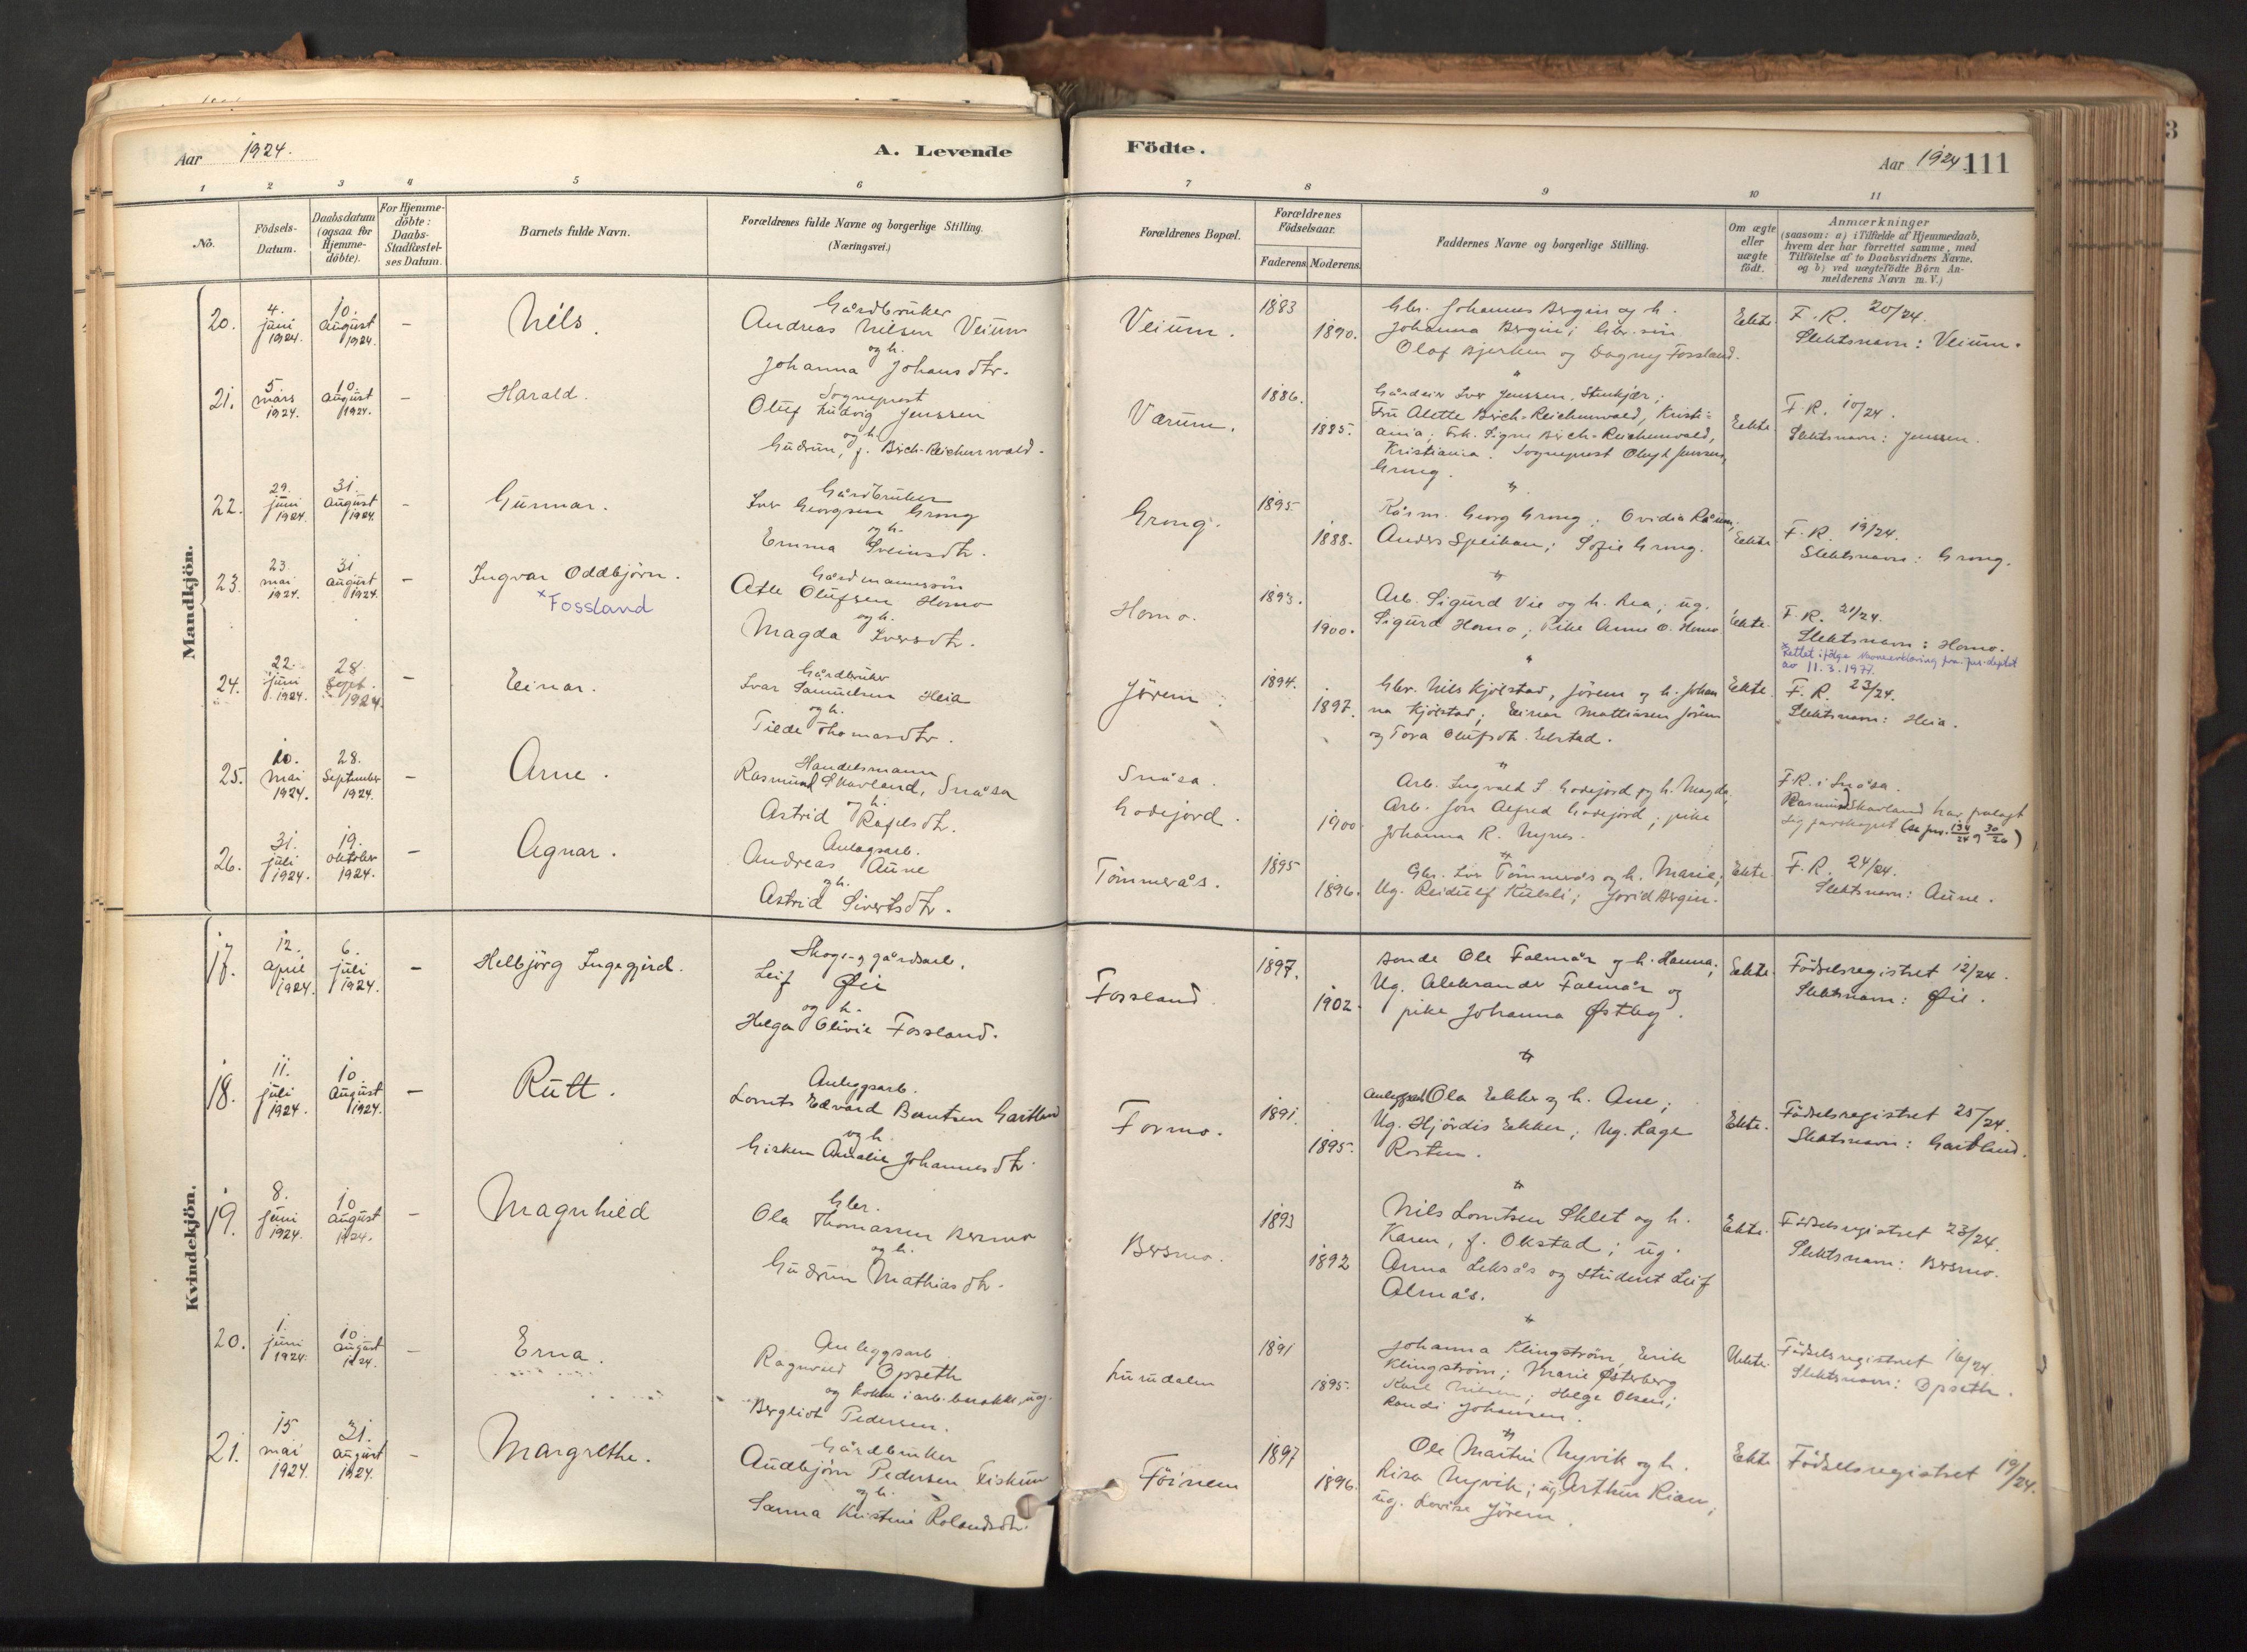 Aar 1924.
A. Levende
Födte.
Aar 1924. 111
3
1 2 3 4 5 6 7 8 9 10 11
No.
Födsels-
Datum.
Daabsdatum
(ogsaa for
Hjemme-
döbte).
For Hjemme-
döbte:
Daabs-
Stadfæstel-
ses Datum.
Barnets fulde Navn.
Forældrenes fulde Navne og borgerlige Stilling.
(Næringsvei.)
Forældrenes Bopæl.
Forældrenes
Födselsaar.
Faderens. Moderens.
Faddernes Navne og borgerlige Stilling.
Om ægte
eller
uægte
födt.
Anmærkninger
(saasom: a) i Tilfælde af Hjemmedaab,
hvem der har forrettet samme, med
Tilföielse af to Daabsvidners Navne.
og b) ved uægtefödte Börn An-
melderens Navn m. V.)
Mandkjön.
20.
4.
juni
1924.
10.
august
1924.
-
Nils.
Gårdbruker
Andreas Nilsen Veium
og h.
Johanna Johansdtr.
Veium.
1883
1890.
Gbr. Johannes Bergin og h.
Johanna Bergin; Gbr. søn
Olaf Bjerken og Dagny Fossland.
Ekte.
F. R. 20/24.
Slektsnavn: Veium.
21.
5.
mars
1924.
10.
august
1924.
-
Harald.
Sogneprest
Oluf Ludvig Jenssen
og h.
Gudrun, f. Birch-Reichenwald.
Værum.
1886.
1885.
Gårdeier Iver Jenssen, Stenkjær;
Fru Alette Birch-Reichenwald, Kristi=
ania; Frk. Signe Birch-Reichenwald,
Kristiania. Sogneprest Oluf L Jenssen,
Grong.
Ekte.
F. R. 10/24.
Slektsnavn: Jenssen.
22.
29.
juni
1924.
31.
august
1924.
-
Gunnar.
Gårdbruker
Iver Georgsen Grong
og h.
Emma Sveinsdtr.
Grong.
1895
1888.
Kårm. Georg Grong; Ovidia Råum;
Anders Speikan; Sofie Grong.
Ekte.
F. R. 19/24.
Slektsnavn: Grong.
23.
23.
mai
1924.
31
august
1924.
-
Ingvar Oddbjörn.
x Fossland
Gårdmannssön
Atle Olufsen Homo
og h.
Magda Iversdtr.
Homo.
1893.
1900.
Arb. Sigurd Vie og h. Rea; ug.
Sigurd Homo; Pike Anne O. Homo
Ekte.
F. R. 21/24.
Slektsnavn: Homo.
x Rettet ifölge navneerklæring fra jus. deptet
av 11.3.1977.
24.
22.
juni
1924.
28.
sept.
1924.
-
Einar.
Gårdbruker
Ivar Samuelsen Heia
og h.
Tilde Thomasdtr.
Jörem.
1894.
1897.
Gbr. Nils Kjölstad, Jörem og h. Johan
na Kjölstad; Einar Mathiasen Jörem
og Tora Olufsdtr. Elstad.
Ekte.
F. R. 23/24.
Slektsnavn: Heia.
25.
10.
mai
1924.
28.
September
1924.
-
Arne.
Handelsmann
Rasmund Skavland, Snåsa
og h.
Astrid Rafelsdtr.
Snåsa.
Godejord.
1900
Arb. Ingvald I Godejord og h. Magda;
Arb. Jon Alfred Godejord; pike
Johanna R. Nynes.
F.R. i Snåsa.
Rasmund Skavland har fralagt
sig farskapet (se jnr. 134/24 og 30/26)
26.
31.
juli
1924.
19.
oktober
1924.
-
Agnar.
Anlægsarb.
Andreas Aune
og h.
Astrid Sivertsdtr.
Tömmerås.
1895
1896.
Gbr. Iver Tömmerås og h. Marie;
Ug. Reidulf Kulsli; Jorid Bergin.
Ekte.
F. R. 24/24.
Slektsnavn: Aune.
Kvindekjön.
17.
12.
April
1924.
6.
juli
1924.
-
Helbjörg Ingegjerd.
Skogs- og gårdsarb.
Leif Øie
og h.
Helga Olivie Fossland.
Fossland.
1897.
1902.
Bonde Ole Falmår og h. Hanna;
Ug. Aleksander Falmår og
pike Johanna Østby.
Ekte.
Födselsregistret 12/24.
Slektsnavn: Øie.
18.
11.
juli
1924.
10.
August
1924.
-
Rutt.
Anleggsarb.
Lorents Edvard Berntsen Gartland
og h.
Gisken Amalie Johannesdtr.
Formo.
1891.
1895.
Anleggsarb. Ola Ekker og h. Ane;
Ug. Hjördis Ekker; Ug. Lage
Rosten.
Ekte.
Födselsregistret 25/24.
Slektsnavn: Gartland.
19.
8.
juni
1924.
10
august
1924.
-
Magnhild
Gbr.
Ola Thomassen Bersmo
og h.
Gudrun Mathiasdtr.
Bersmo.
1893
1892
Nils Lorntsen Sklet og h.
Karen, f. Okstad; ug.
Anna Leksås og student Leif
Almås.
Ekte.
Födselsregistret 23/24.
Slektsnavn: Bersmo.
20.
1.
juni
1924.
10.
august
1924.
-
Erna.
Anleggsarb.
Ragnvald Opseth
og kokke i arb. barakke, ug.
Bergliot Pedersen.
Lurudalen
1891
1895.
Johanna Klingström, Erik
Klingström; Marie Østerberg
Karl Nilsen; Helge Olsen;
Randi Johansen.
Uekte.
Födselsregistret 16/24.
Slektsnavn: Opseth.
21.
15
mai
1924.
31.
august
1924.
-
Margrethe.
Gårdbruker
Audbjörn Pedersen Fiskum
og h.
Sanna Kristine Rolandsdtr.
Föinem
1897
1896.
Ole Martin Nyvik og h.
Risa Nyvik; ug. Arthur Rian;
ug. Lovise Jörem.
Ekte
Födselsregistret 19/24.